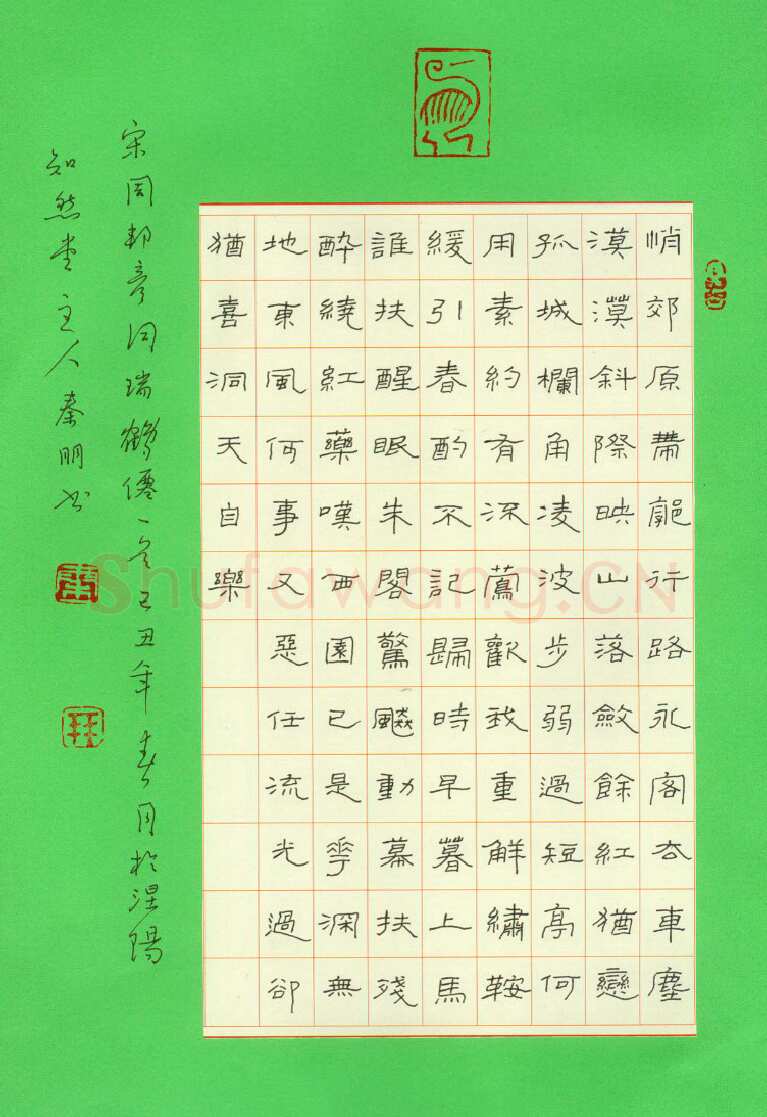 悄郊原帶郭行路永客去車塵
漠漠斜際映山落斂餘紅猶戀
孤城欄角凌波步弱過短亭何
用素約有深鶯勸我重解繡鞍
緩引春酌不記歸時早暮上馬
誰扶醒眠朱閣驚飆動幕扶殘
醉繞紅藥嘆西園已是花深無
地東風何事又惡任流光過卻
猶喜洞天自樂
宋周邦彥詞瑞鶴僊一首己丑年春月於涅陽
知然堂主人秦明書
Shufawang.CN